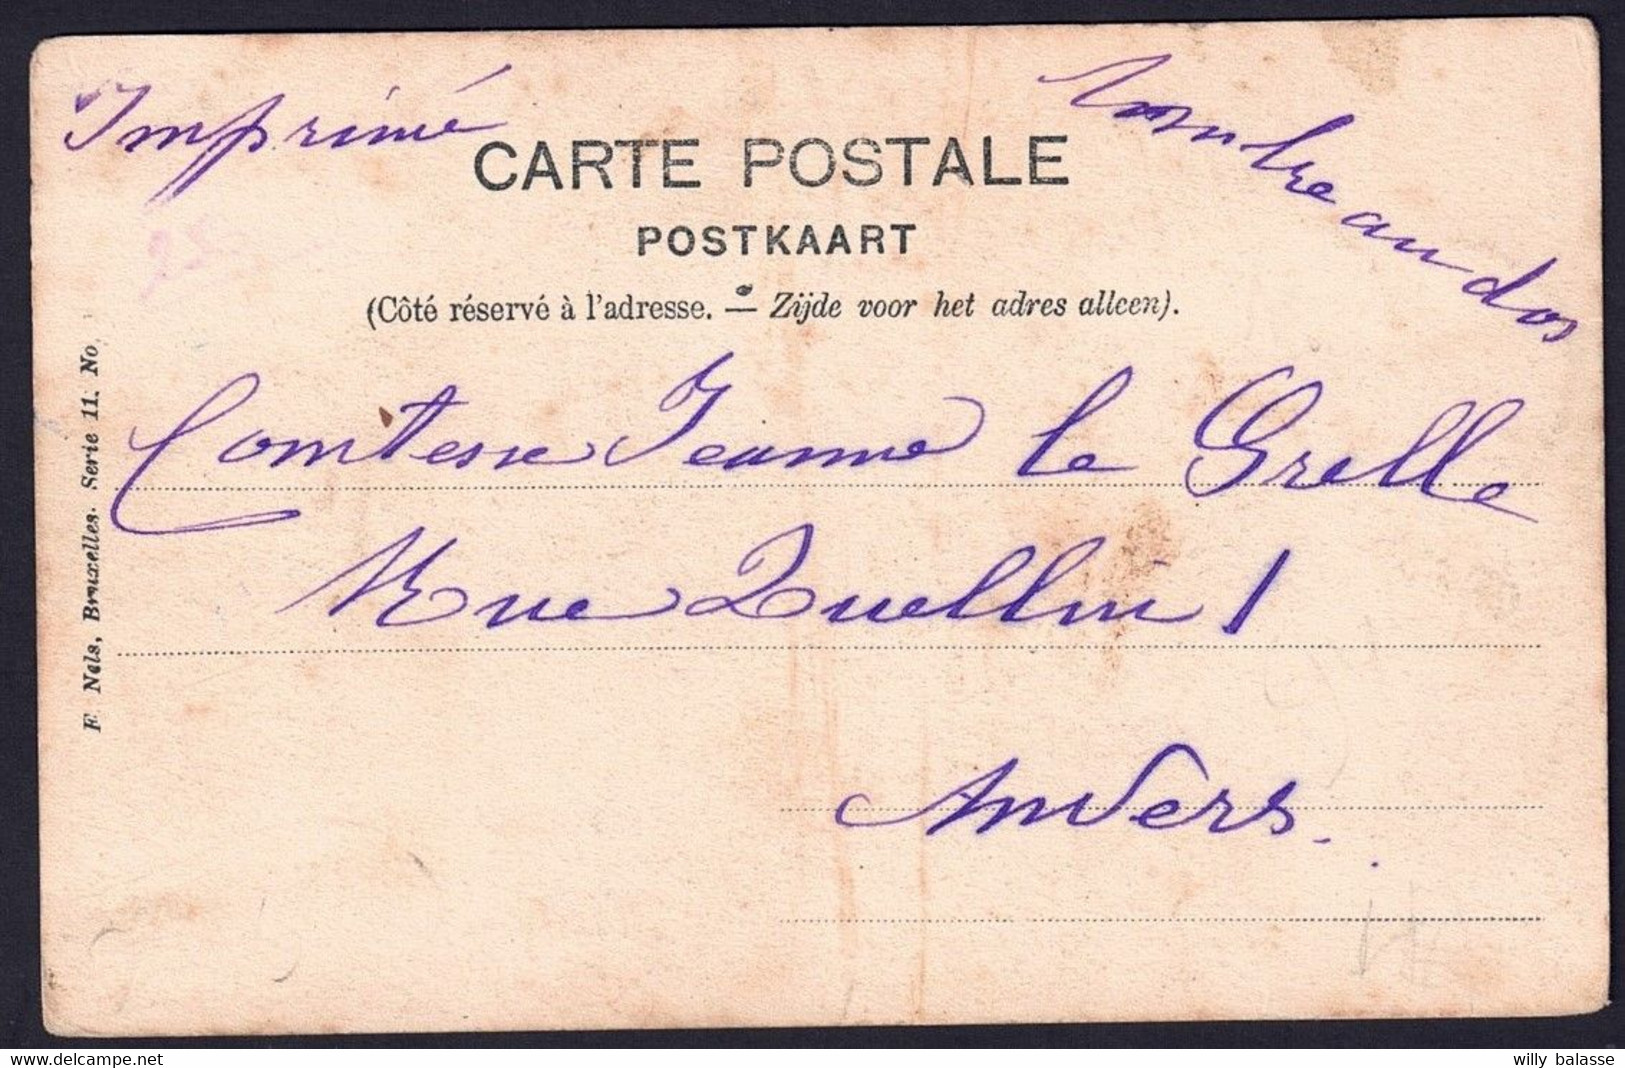 Imprimé
Timbre au dos
CARTE POSTALE
POSTKAART
(Côté réservé à l'adresse. — Zijde voor het adres alleen).
F. Nels, Bruxelles. Serie 11. No
Comtesse Jeanne le Grelle
Rue Quellin 1
Anvers.
delcampe.net
willy balasse